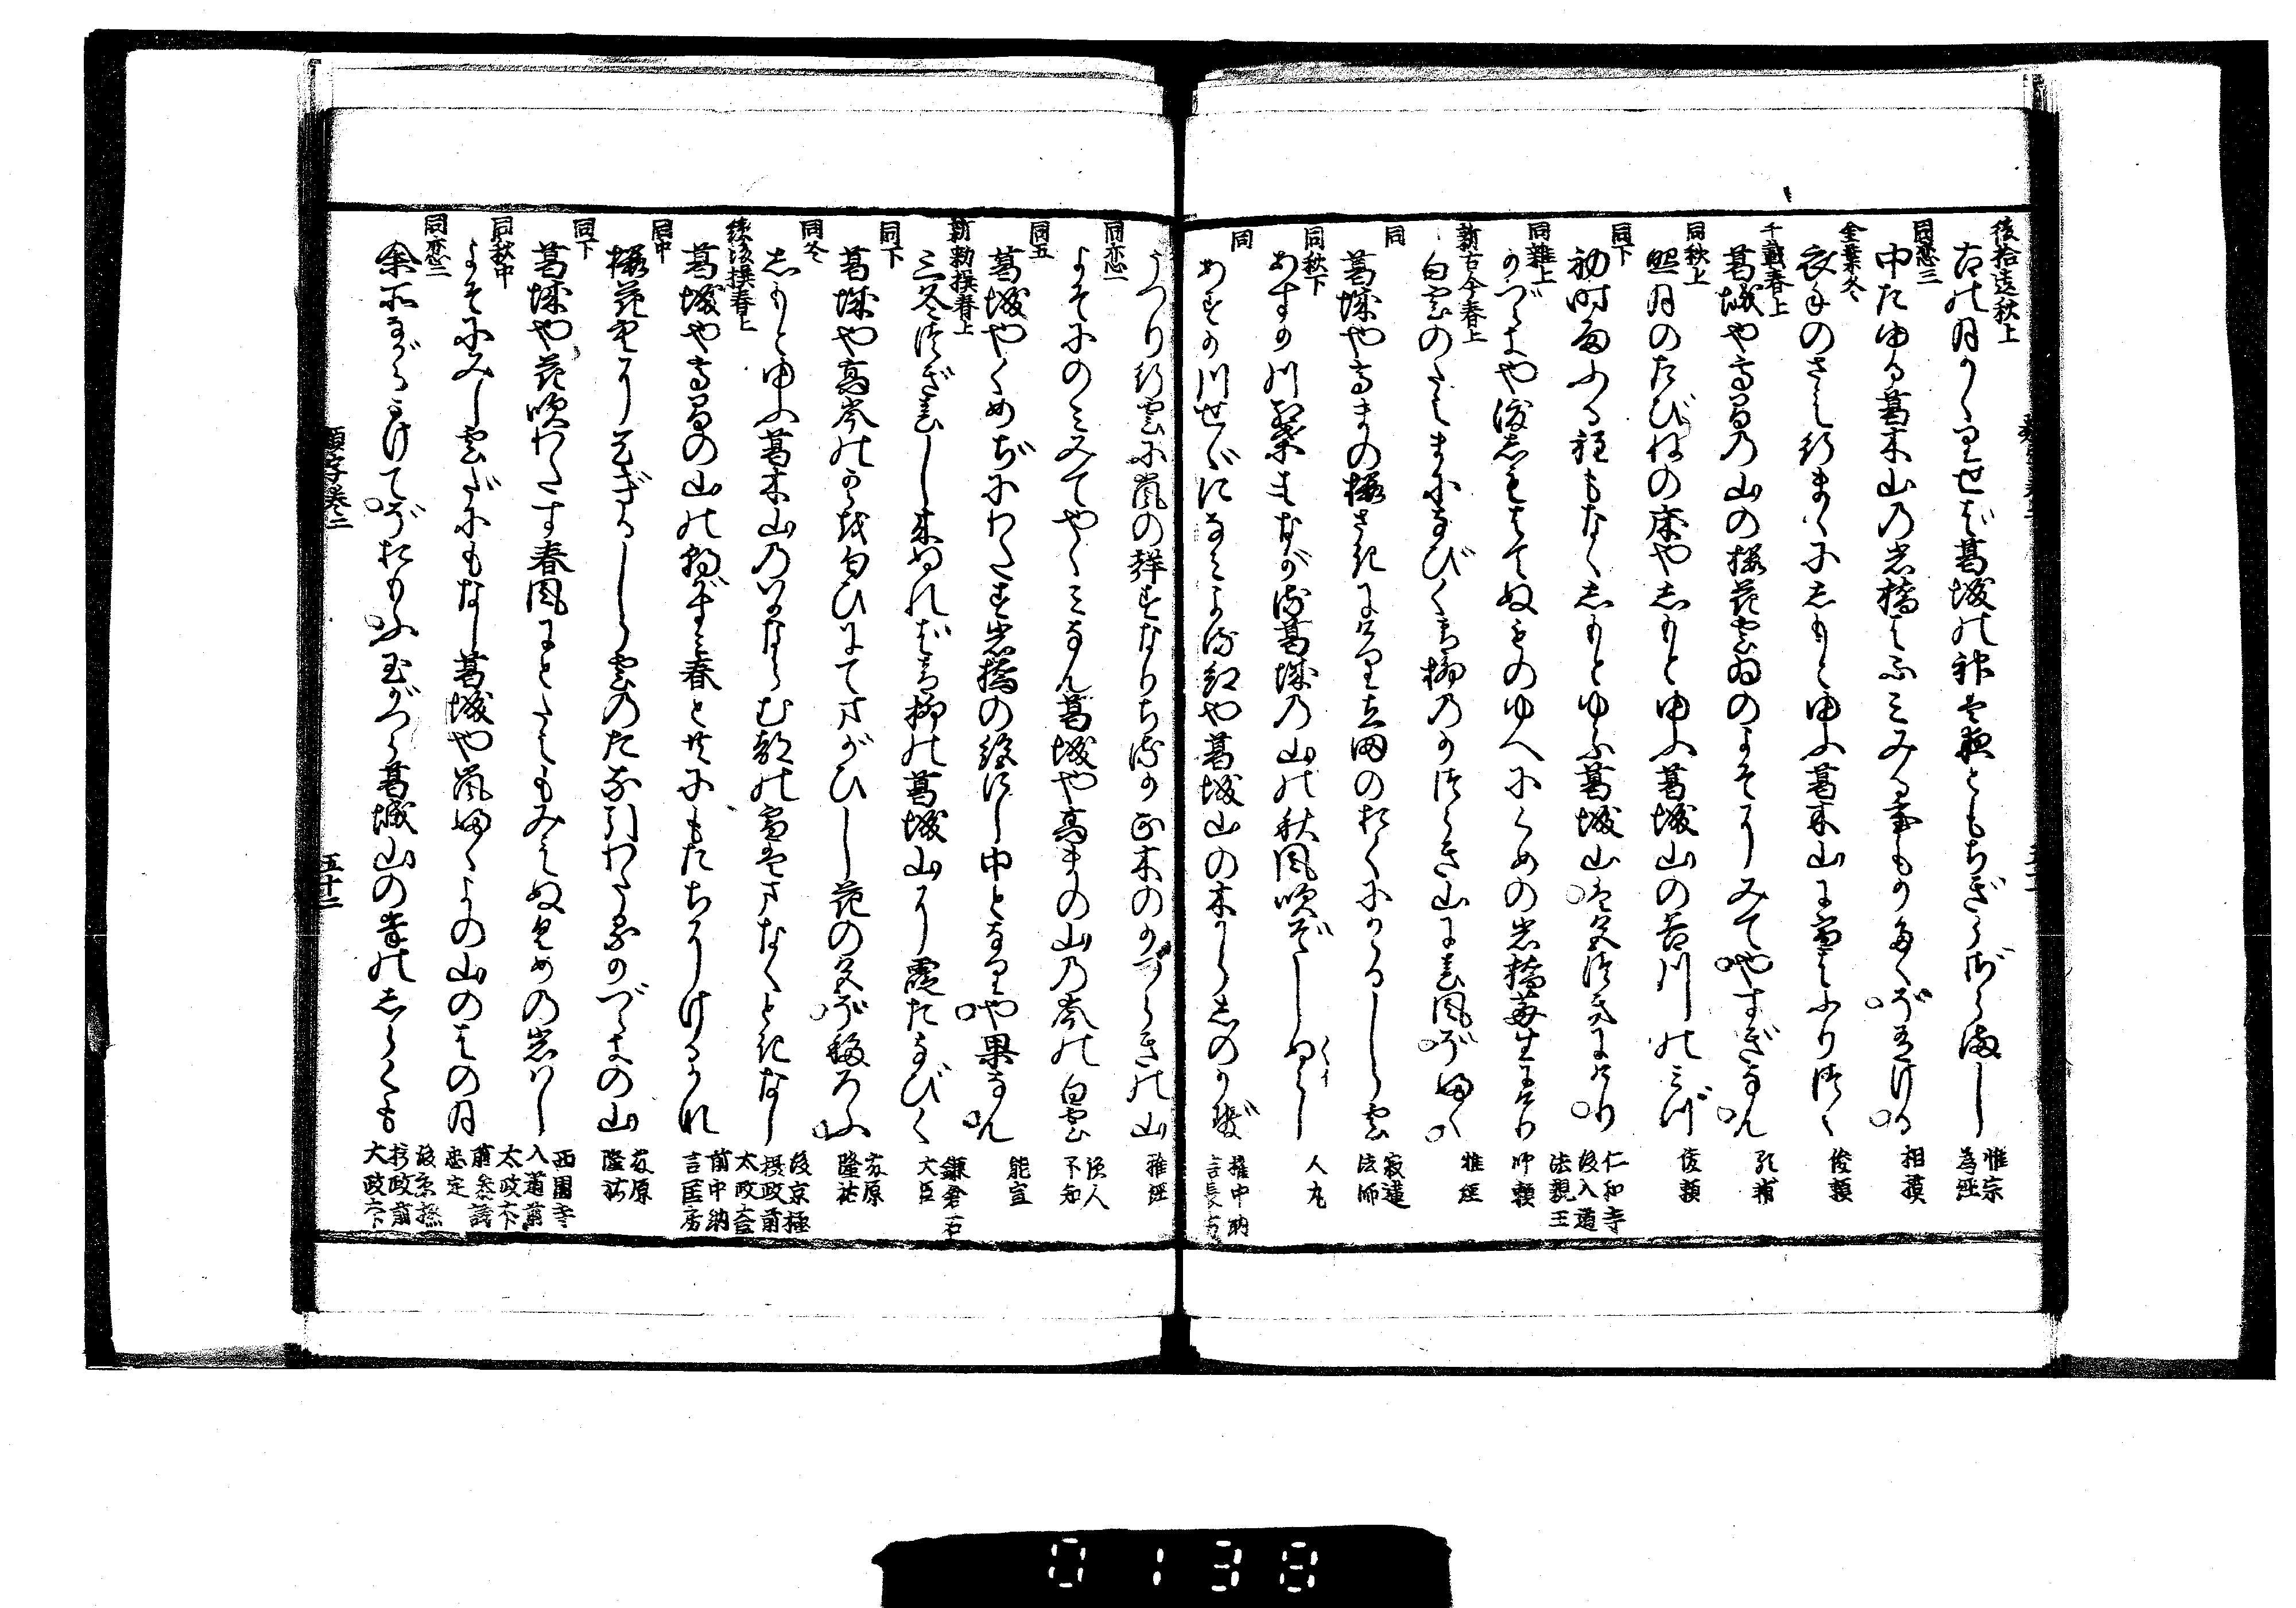 後拾遺秋上
古の月かゝりせば葛城の神は夜ともちぎらざらまし
惟宗為経
同恋三
中たゆる葛木山の岩橋はふみみる事もかたくぞ有ける
相摸
金葉冬
衣手のさえ行まゝにしもとゆふ葛木山に雪はふりつゝ
俊頼
千載春上
葛城や高間の山の桜花雲ゐのよそにみてやすぎなん
顕輔
同秋上
照月のたびねの床やしもとゆふ葛城山の谷川のみづ
俊頼
同下
初時雨ふる程もなくしもとゆふ葛城山は色付にけり
仁和寺後入道法親王
同雑上
かづらきや渡しもはてぬものゆへにくめの岩橋苔生にけり
師頼
新古今春上
白雲のたえまになびく青柳のかづらき山に春風ぞふく
雅経
同
葛城や高まの桜さきにけり立田のおくにかゝるしら雲
寂蓮法師
同秋下
あすか川紅葉ゝながる葛城の山の秋風吹ぞしぬらし
人丸
同
あすか川せゞになみよる紅や葛城山の木がらしのかぜ
権中納言長方
うつり行雲に嵐の声すなりちるか正木のかづらきの山
雅経
同恋一
よそにのみみてやゝみなん葛城や高まの山の岑の白雲
読人不知
同五
葛城やくめぢにわたす岩橋の絶にし中となりや果なん
能宣
新勅撰春上
三冬つぎ春し来ぬれば青柳の葛城山に霞たなびく
鎌倉右大臣
同下
葛城や高岑の雲を匂ひにてまがひし花の色ぞ移ろふ
藤原隆祐
同冬
しもとゆふ葛木山のいかならむ都の雪もまなくときなし
後京極摂政前太政大臣
続後撰春上
葛城や高間の山の朝がすみ春とともにもたちにけるかな
前中納言匡房
同中
桜花空にあまぎるしら雲のたな引わたるかづらきの山
藤原隆祐
同下
葛城や花吹わたす春風にとだえもみえぬくめの岩はし
西園寺入道前太政大臣
同秋中
よそにみし雲だにもなし葛城や嵐ふくよの山のはの月
前参議忠定
同恋二
余所ながらかけてぞおもふ玉かづら葛城山の峯のしらくも
後京極摂政前太政大臣
類字巻二
五十三
0138